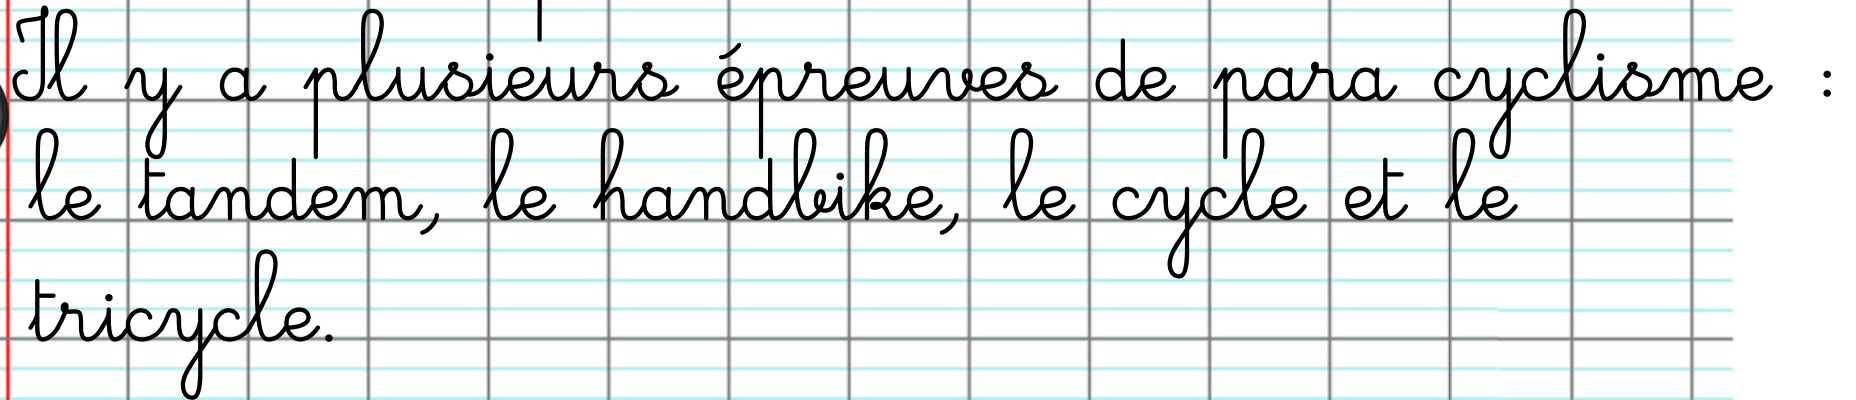 Il y a plusieurs épreuves de para cyclisme :
le tandem, le handbike, le cycle et le
tricycle.